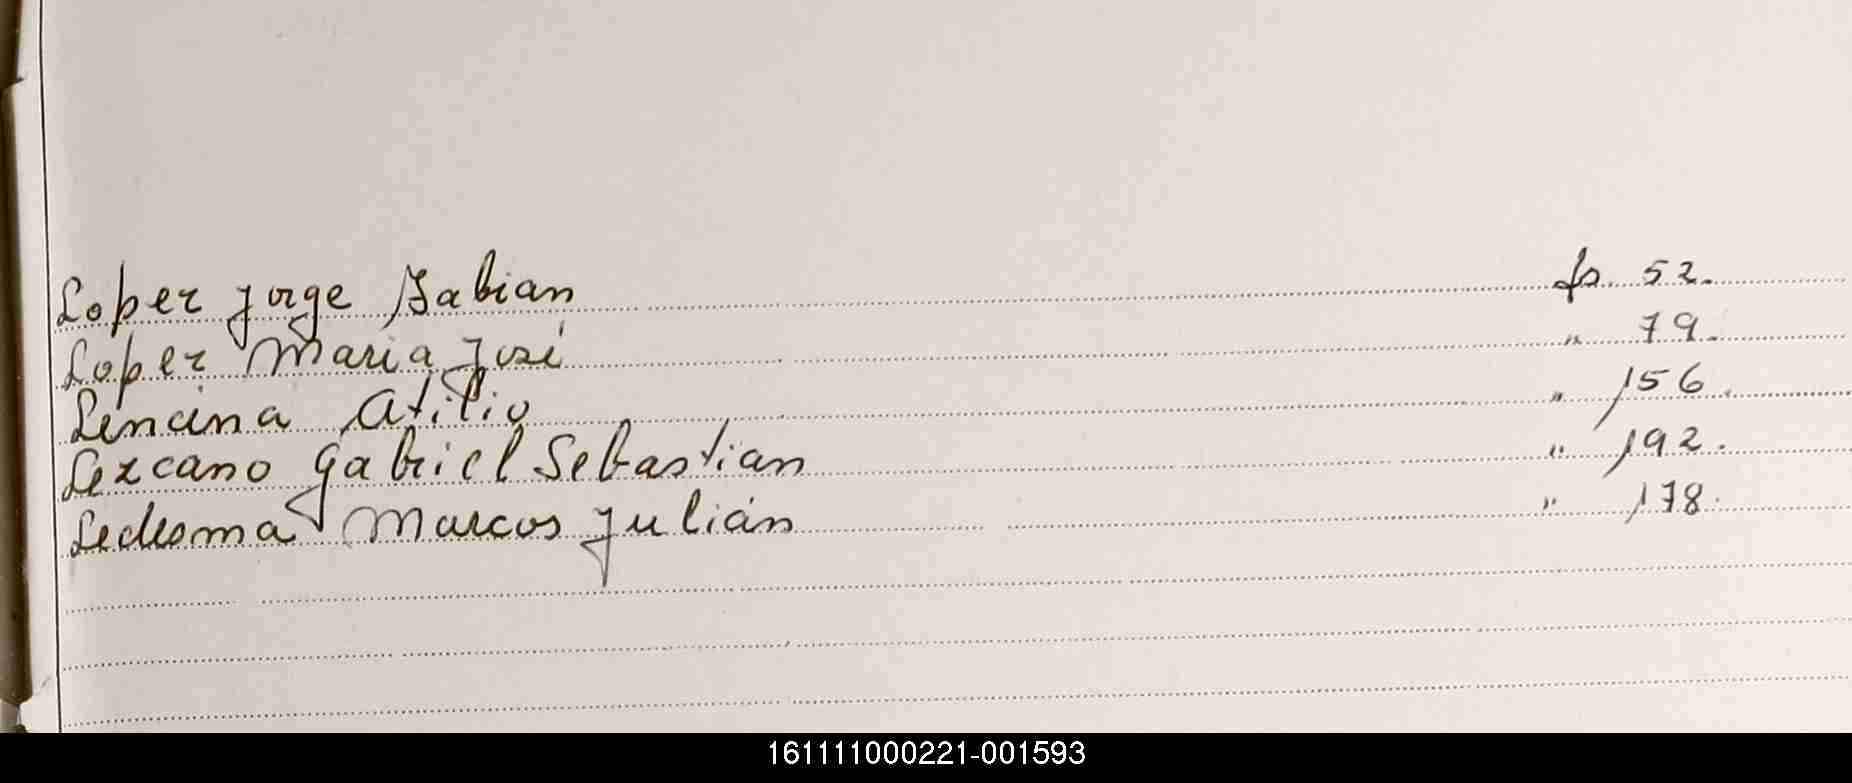 Lopez Jorge Fabian fs. 52.
Lopez Maria José " 79.
Lencina Atilio " 156.
Lezcano Gabriel Sebastian " 192.
Ledesma Marcos Julián " 178.
161111000221-001593